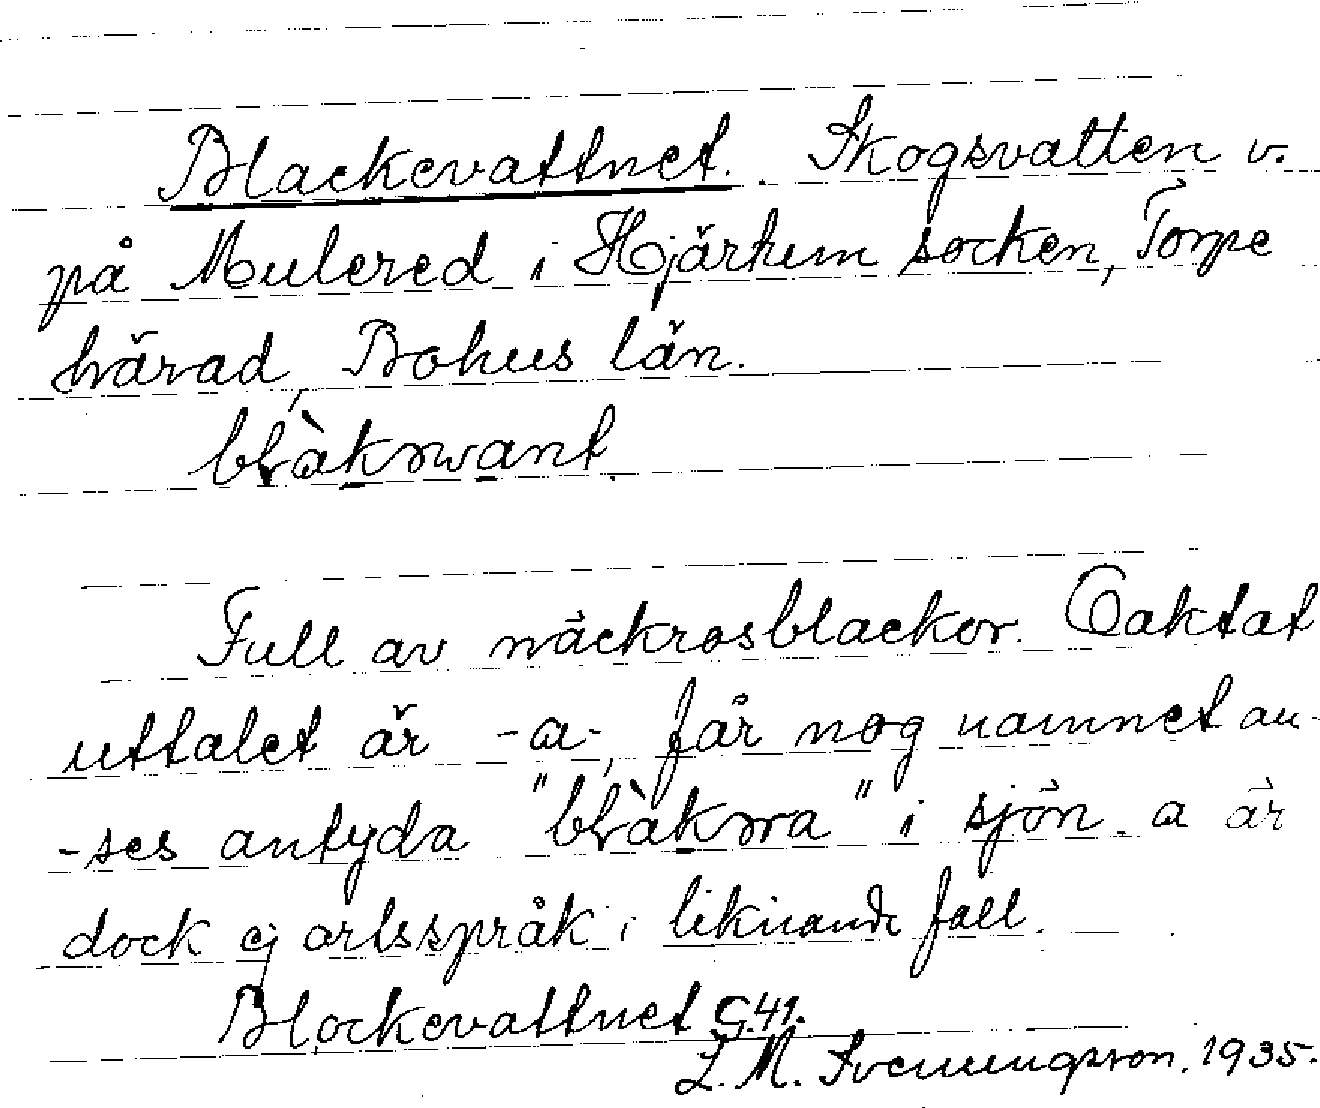 Blackevattnet. Skogsvatten v.
på Mulered i Hjärtum socken, Torpe
härad, Bohus län.
Full av näckrosblackor. Oaktat
uttalet är -a-, får nog namnet an-
-ses antyda i sjön. a är
dock ej ortsspråk i liknande fall.
Blockevattnet G.41.
L. M. Svenungsson. 1935.